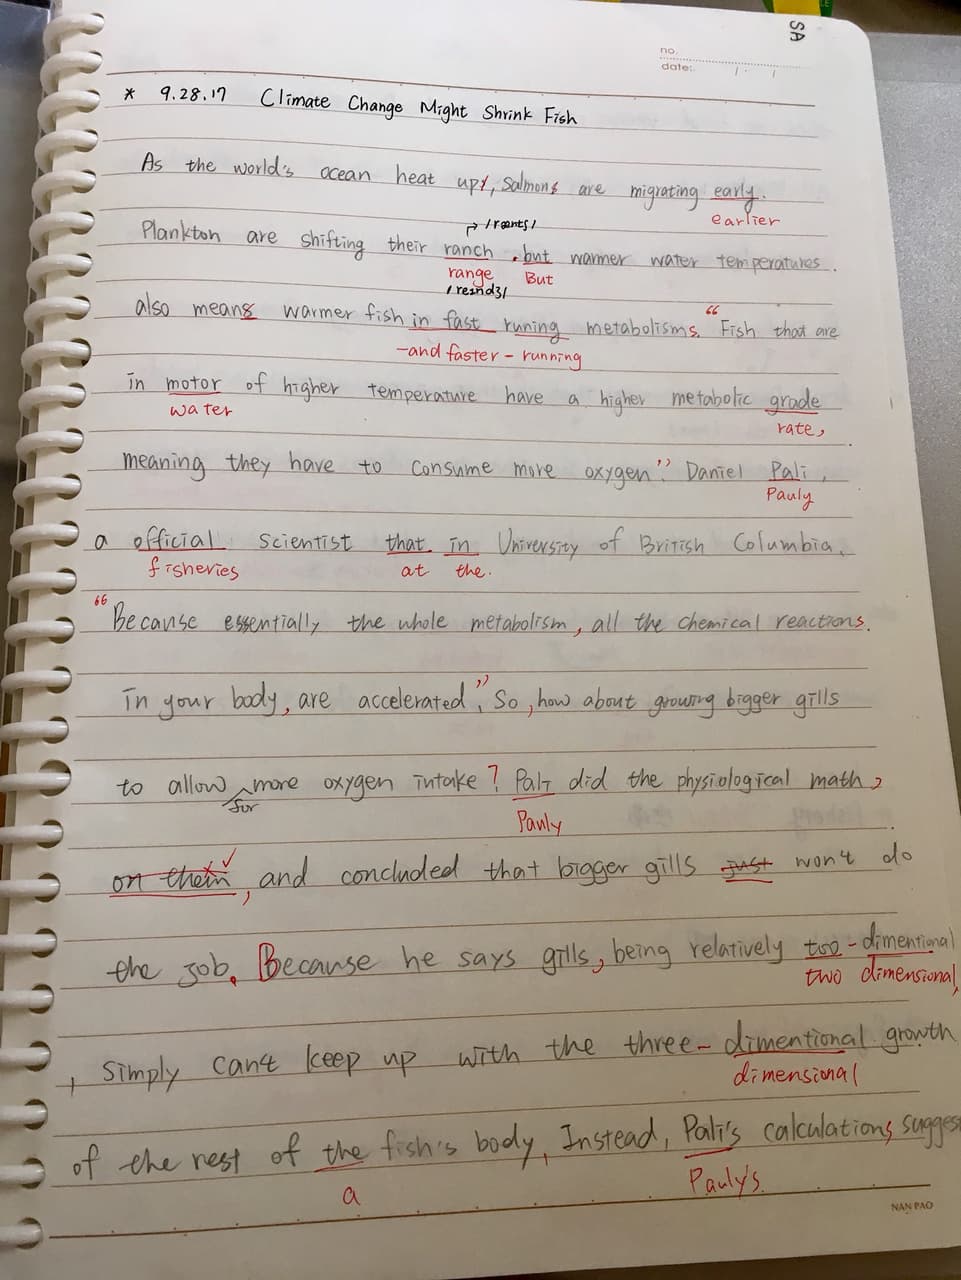 SA
no.
date: / /
* 9.28.17 Climate Change Might Shrink Fish
As the world's ocean heat up, Salmons are migrating early.
earlier
/ræntʃ/
Plankton are shifting their ranch . but warmer water temperatures.
range But
/reɪndʒ/
also means warmer fish in fast runing metabolisms. “Fish that are
-and faster-running
in motor of higher temperature have a higher metabolic grade
water rate,
meaning they have to consume more oxygen”. Daniel Pali,
Pauly
a official scientist that in University of British Columbia.
fisheries at the.
“Because essentially the whole metabolism, all the chemical reactions.
in your body, are accelerated”. So, how about growing bigger gills
to allow more oxygen intake? Pali did the physiological math,
for Pauly
on them, and concluded that bigger gills just won't do
the job. Because he says gills, being relatively two-dimentional
two dimensional,
, simply can't keep up with the three-dimentional growth
dimensional
of the rest of the fish's body, Instead, Pali's calculations sugges
a Pauly's.
NAN PAO